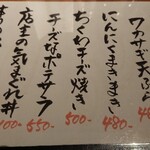 ワカサギ天ぷら
にんにくまきまき 480-
ちくわチーズ焼き 500-
チーズなポテサラ 550-
店主の気まぐれ丼